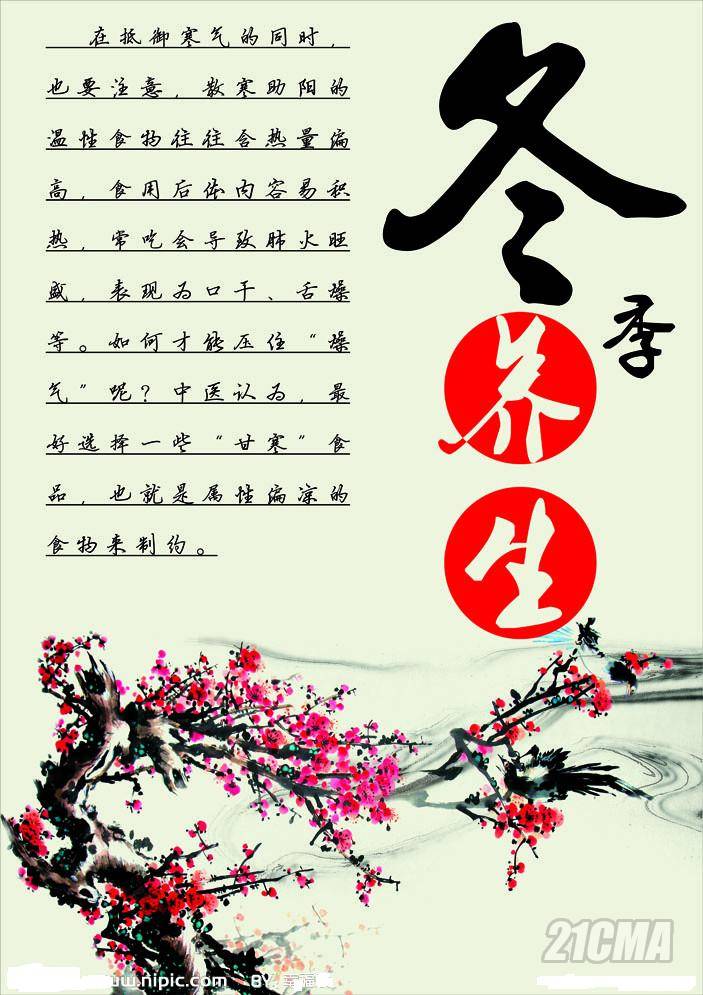 在抵御寒气的同时，
也要注意，散寒助阳的
温性食物往往含热量偏
高，食用后体内容易积
热，常吃会导致肺火旺
盛，表现为口干、舌燥
等。如何才能压住“燥
气”呢？中医认为，最
好选择一些“甘寒”食
品，也就是属性偏凉的
食物来制约。
冬
季
养
生
21CMA
www.nipic.com BY:幸福